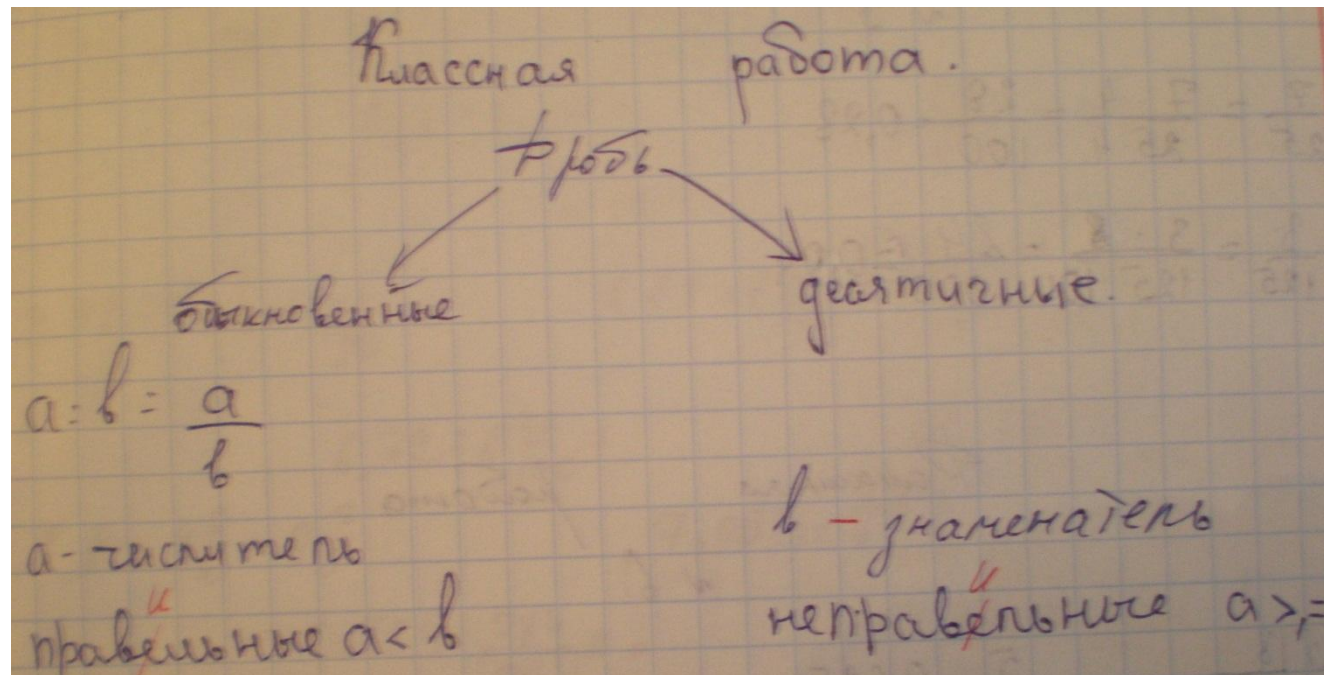 Классная работа.
Дробь
обыкновенные десятичные.
a : b = a/b
a - числитель b - знаменатель
правельные a < b неправельные a >,=
и и